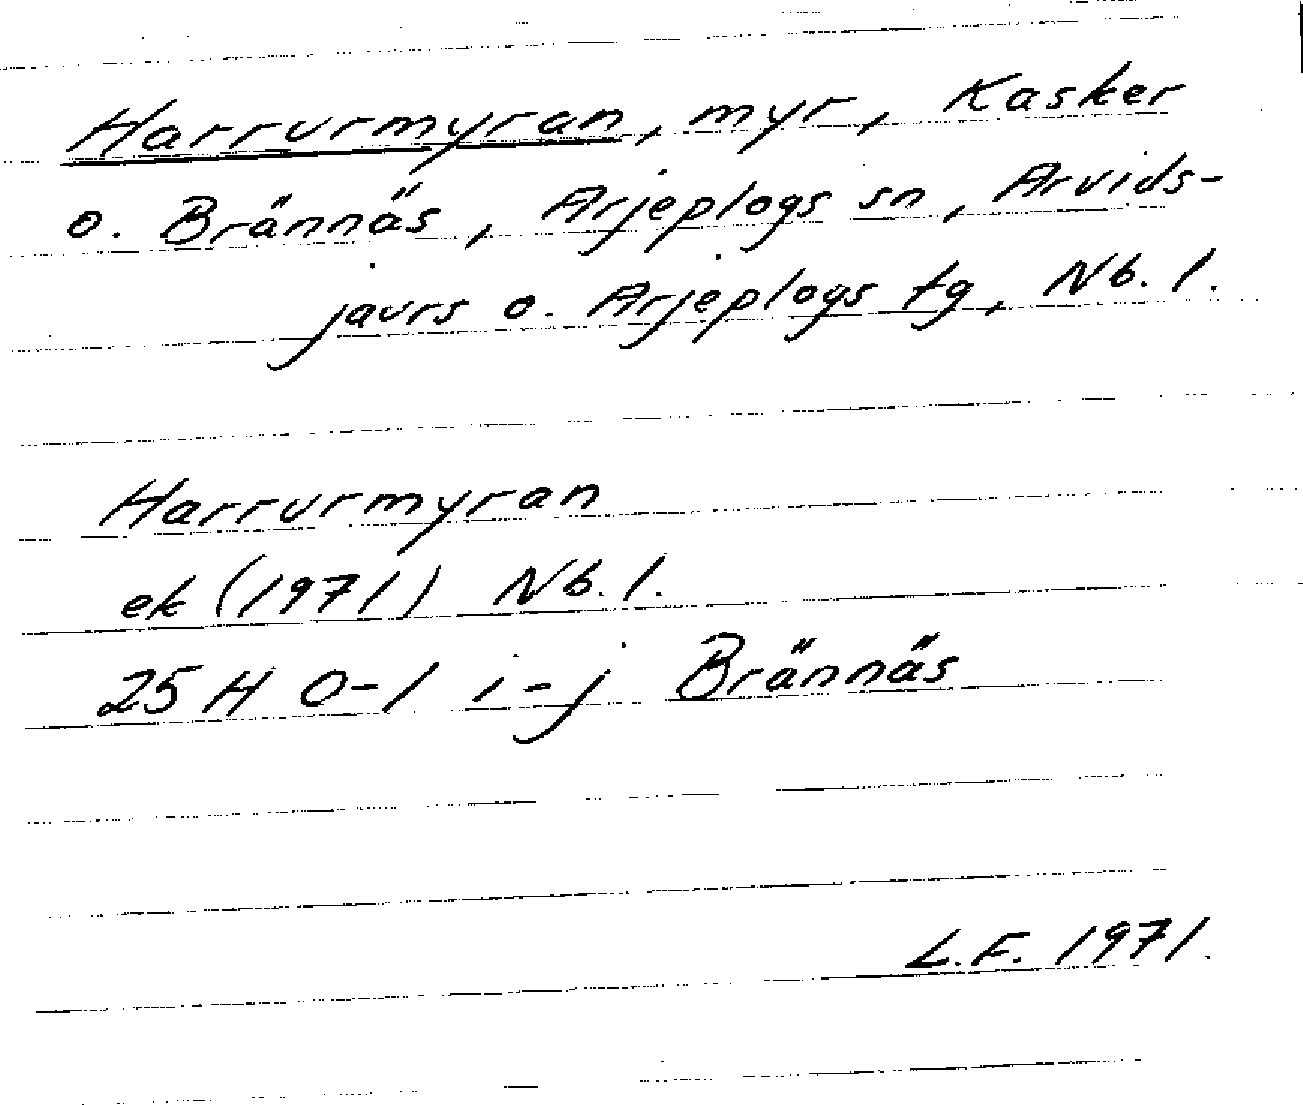 Harrurmyran, myr, Kasker
o. Brännäs, Arjeplogs sn, Arvids-
jaurs o. Arjeplogs tg, Nb. l.
Harrurmyran
ek (1971) Nb. l.
25 H 0-1 i-j Brännäs
L.F. 1971.